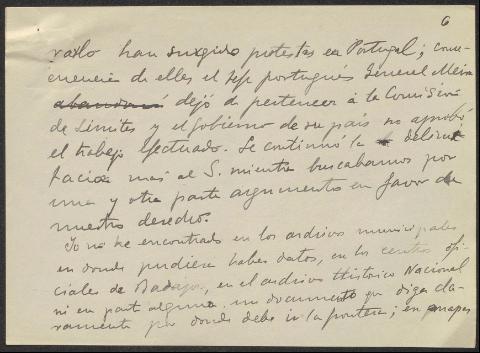 6
rarlo han surgido protestas en Portugal; conse-
cuencia de elles el Jefe portugués General Meira
abandonó dejó de pertenecer á la Comisión
de Limites y el Gobierno de su país no aprobó
el trabajo efectuado. Se continuó la delimi
tacion mas al S. mientra buscabamos por
una y otra parte argumentos en favor de
nuestro derecho.
Yo no he encontrado en los archivos municipales
en donde pudiera haber datos, en los centros ofi-
ciales de Badajoz, en el archivo Histórico Nacional
ni en parte alguna, un documento que diga cla-
ramente por donde debe ir la frontera; en mapas